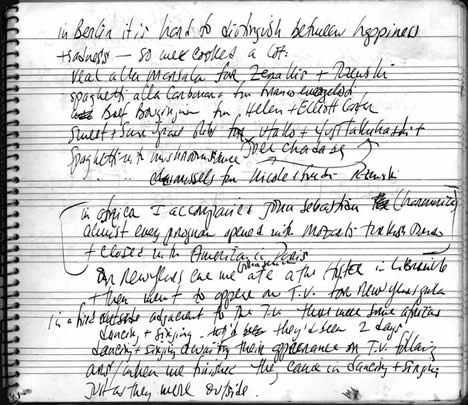 in Berlin it is hard to distinguish between happiness
+ sadness — so we cooked a lot:
veal alla marsala for Xenakis + Rzewski
spaghetti alla Carbonara for
Beef Bourguignon for Helen + Elliott Carter
sweet + sour for + Yuji Takahashi +
spaghetti with mushroom sauce Joel Chadabe
mussels for Nicole + Rzewski
in africa I accompanied John Sebastian (harmonica)
almost every program opened with Mozarts turkish
+ closed with American in Paris
on new years eve we ate at the in Libreville
+ then went to appear on T.V. for new years gala
in a field outside adjacent to the T.V. there were some africans
dancing + singing. they'd been 2 days
dancing + singing awaiting their appearance on T.V. following
ours/when we finished they came in dancing + singing
just as they were outside.